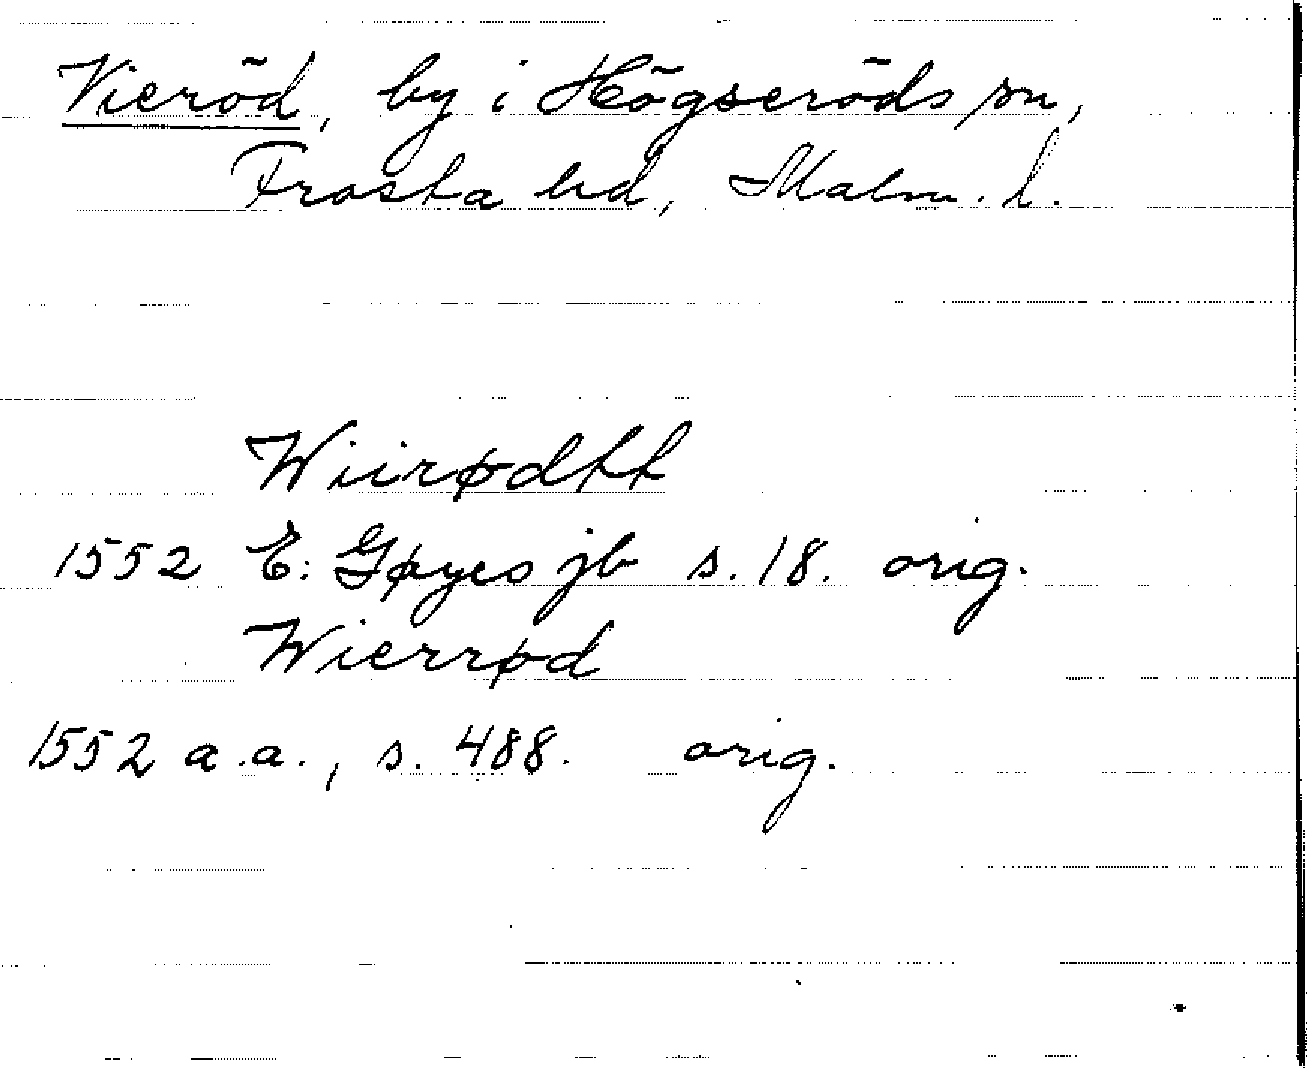 Vieröd, by i Högseröds sn,
Frosta hd, Malm. l.
Wiirødtt
1552 E: Gøyes jb s. 18. orig.
Wierrød
1552 a.a., s. 488. orig.